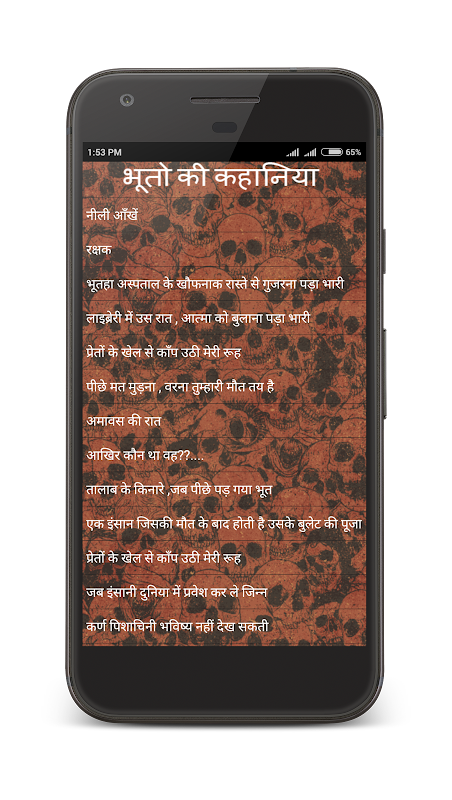 1:53 PM 65%
भूतो की कहानिया
नीली आँखें
रक्षक
भूतहा अस्पताल के खौफनाक रास्ते से गुजरना पड़ा भारी
लाइब्रेरी में उस रात , आत्मा को बुलाना पड़ा भारी
प्रेतों के खेल से काँप उठी मेरी रूह
पीछे मत मुड़ना , वरना तुम्हारी मौत तय है
अमावस की रात
आखिर कौन था वह??....
तालाब के किनारे ,जब पीछे पड़ गया भूत
एक इंसान जिसकी मौत के बाद होती है उसके बुलेट की पूजा
प्रेतों के खेल से काँप उठी मेरी रूह
जब इंसानी दुनिया में प्रवेश कर ले जिन्न
कर्ण पिशाचिनी भविष्य नहीं देख सकती